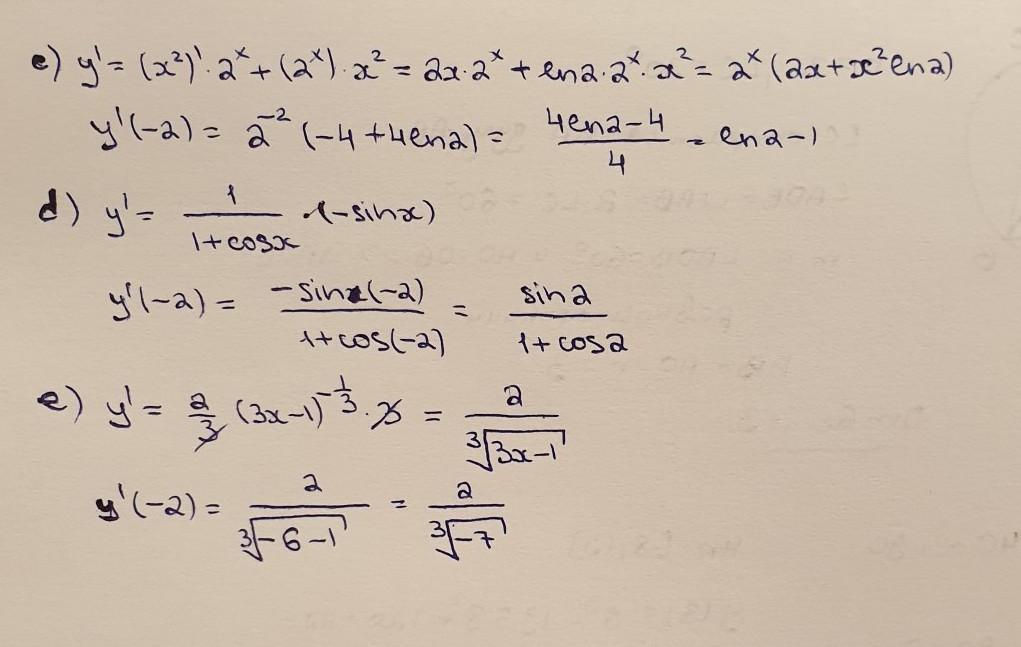 c) y' = (x²)' · 2ˣ + (2ˣ) · x² = 2x · 2ˣ + ln2 · 2ˣ · x² = 2ˣ (2x + x² ln2)
y'(-2) = 2⁻² (-4 + 4ln2) = (4ln2 - 4)/4 = ln2 - 1
d) y' = 1/(1 + cosx) · (-sinx)
y'(-2) = -sin(-2)/(1 + cos(-2)) = sin2/(1 + cos2)
e) y' = 2/3 (3x-1)^(-1/3) · 3 = 2/∛(3x-1)
y'(-2) = 2/∛(-6-1) = 2/∛(-7)